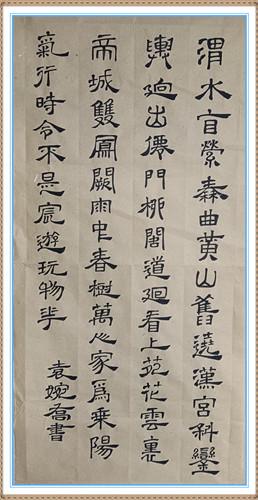 渭水自縈秦曲黃山舊遶漢宮斜鑾
輿迥出僊門柳閣道迴看上苑花雲裏
帝城雙鳳闕雨中春樹萬人家爲乘陽
氣行時令不是宸遊玩物華
袁婉喬書